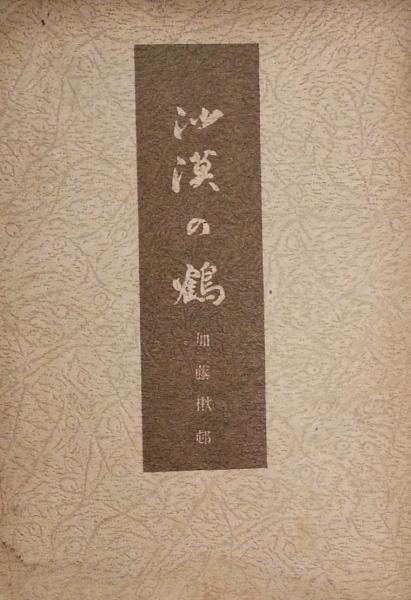 沙漠の鶴
加藤楸邨